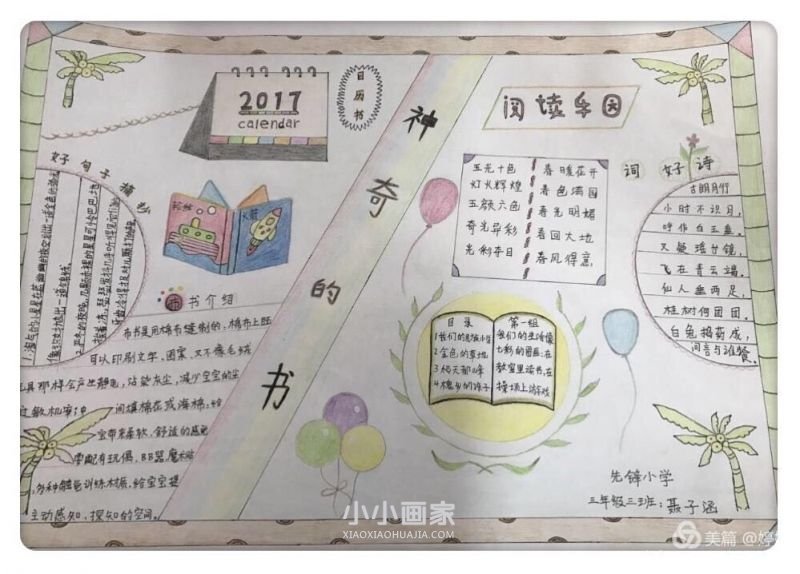 2017
calendar
日历书
神奇的书
阅读乐园
好句子摘抄
五光十色
灯火辉煌
五颜六色
奇光异彩
光彩夺目
春暖花开
春色满园
春光明媚
春回大地
春风得意
词 好诗
古朗月行
小时不识月,
呼作白玉盘。
又疑瑶台镜,
飞在青云端。
仙人垂两足,
桂树何团团。
白兔捣药成,
问言与谁餐。
火箭
布书介绍
布书是用棉布缝制的,棉布上既
可以印刷文字、图案,又不像毛绒
玩具那样会产生静电,沾染灰尘,减少宝宝的尘
间填棉花或海棉,给
宝宝带来柔软、舒适的感觉
零配有玩偶、BB器、魔术贴
多种触觉训练材质,给宝宝提
主动感知、探知的空间。
目录
1 我们的民族小学
2 金色的草地
3 爬天都峰
4 槐乡的孩子
第一组
我们的生活像
七彩的图画:在
教室里读书,在
操场上游戏
先锋小学
三年级三班:聂子涵
小小画家
XIAOXIAOHUAJIA.COM
美篇 @婷